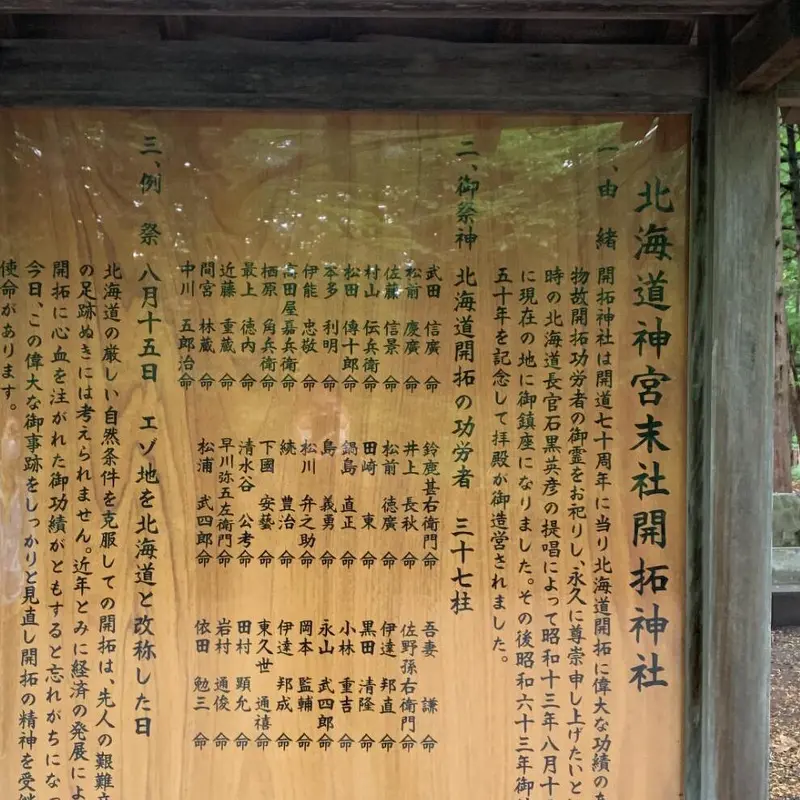 北海道神宮末社開拓神社
一、由緒 開拓神社は開道七十周年に当り北海道開拓に偉大な功績の
物故開拓功労者の御霊をお祀りし、永久に尊崇申し上げたいと
時の北海道長官石黒英彦の提唱によって昭和十三年八月十
に現在の地に御鎮座になりました。その後昭和六十三年御
五十年を記念して拝殿が御造営されました。
二、御祭神 北海道開拓の功労者 三十七柱
武田 信廣 命
松前 慶廣 命
佐藤 信景 命
村山 伝兵衛 命
松田 傳十郎 命
本多 利明 命
伊能 忠敬 命
高田屋嘉兵衛 命
栖原 角兵衛 命
最上 徳内 命
近藤 重蔵 命
間宮 林蔵 命
中川 五郎治 命
鈴鹿甚右衛門 命
井上 長秋 命
松前 徳廣 命
田崎 東 命
鍋島 直正 命
島 義勇 命
松川 弁之助 命
続 豊治 命
下國 安藝 命
清水谷 公考 命
早川弥五左衛門 命
松浦 武四郎 命
吾妻 謙 命
佐野孫右衛門 命
伊達 邦直 命
黒田 清隆 命
小林 重吉 命
永山 武四郎 命
岡本 監輔 命
伊達 邦成 命
東久世 通禧 命
田村 顕允 命
岩村 通俊 命
依田 勉三 命
三、例祭 八月十五日 エゾ地を北海道と改称した日
北海道の厳しい自然条件を克服しての開拓は、先人の艱難
の足跡ぬきには考えられません。近年とみに経済の発展によ
開拓に心血を注がれた御功績がともすると忘れがちになっ
今日、この偉大な御事跡をしっかりと見直し開拓の精神を受継
使命があります。